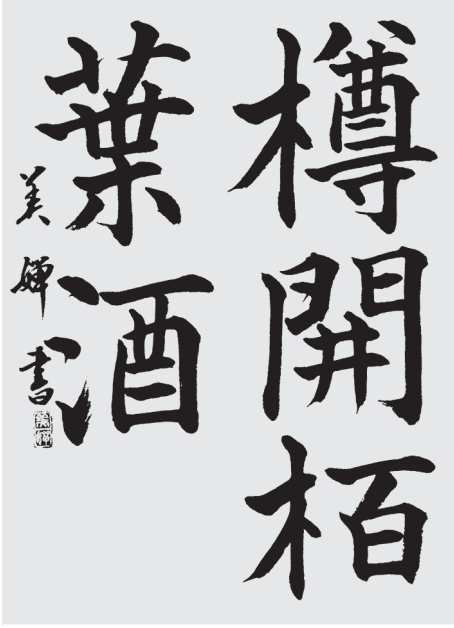 樽開栢
葉酒
美嬋書